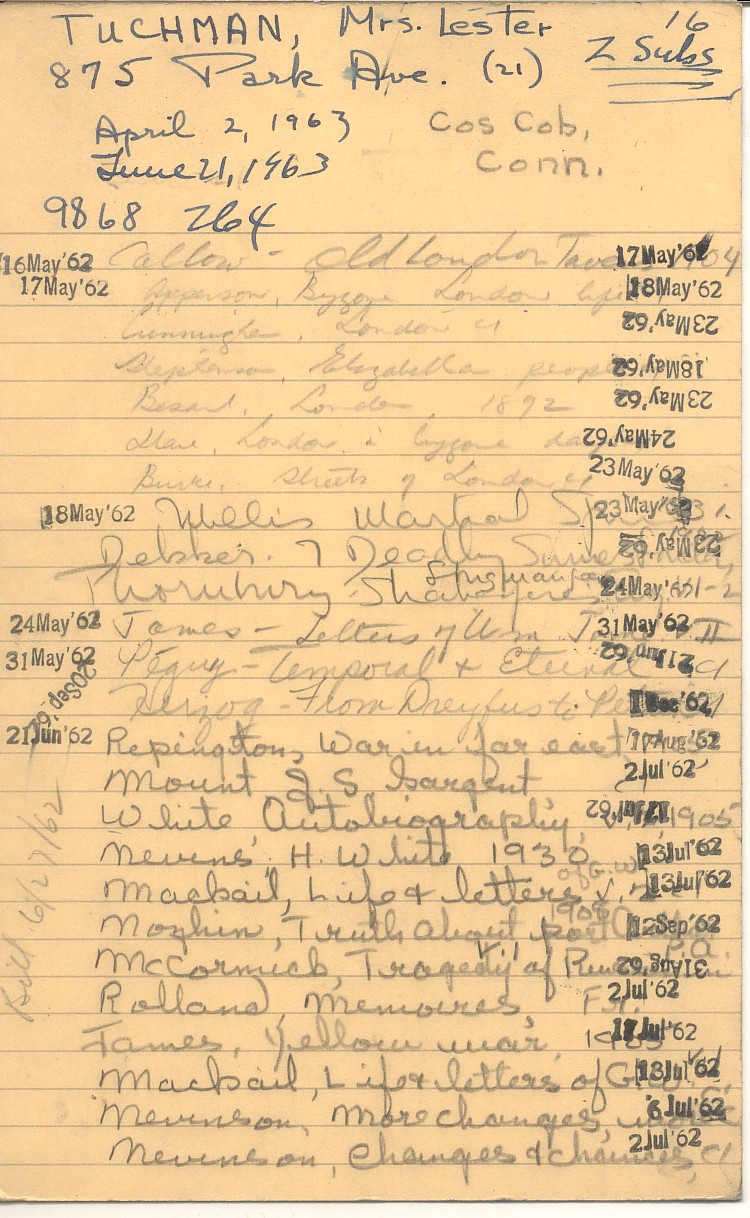 TUCHMAN, Mrs. Lester 16
875 Park Ave. (21) 2 Subs
April 2, 1963 Cos Cob,
June 21, 1963 Conn.
9868 264
16May'62 Callow - Old London Taverns 17May'62
17May'62 Apperson, Bygone London life 18May'62
Cunningham, London c1 23May'62
Stephenson, Elizabethan people 18May'62
Besant, London, 1892 23May'62
Hare, London in bygone days 24May'62
Burke, Streets of London c1 23May'62
18May'62 Martial 23May'62
Dekker. 7 Deadly Sinnes 23May'62
Thornbury, Shakspere's England 24May'62 v1-2
24May'62 James - Letters of Wm James II 31May'62
31May'62 Péguy - Temporal & Eternal c1 21Jun'62
20Sep'62 Herzog - From Dreyfus to Pétain 1Dec'62
21Jun'62 Repington, War in far east 17Aug'62
Mount J. S. Sargent 2Jul'62
White Autobiography, 1905 12Jul'62
Nevins, H. White 1930 13Jul'62
Mackail, Life & letters of G.W. v. 2 13Jul'62
1908
Mozhin, Truth about Port 12Sep'62
McCormick, Tragedy of v1 31Aug'62
Rolland, Memoires, Fr. 2Jul'62
James, Yellow war, 1905 17Jul'62
Mackail, Life & letters of G.W. v1 13Jul'62
Nevinson, More changes, more 6Jul'62
Nevinson, Changes & chances, c1 2Jul'62
Bill 6/27/62